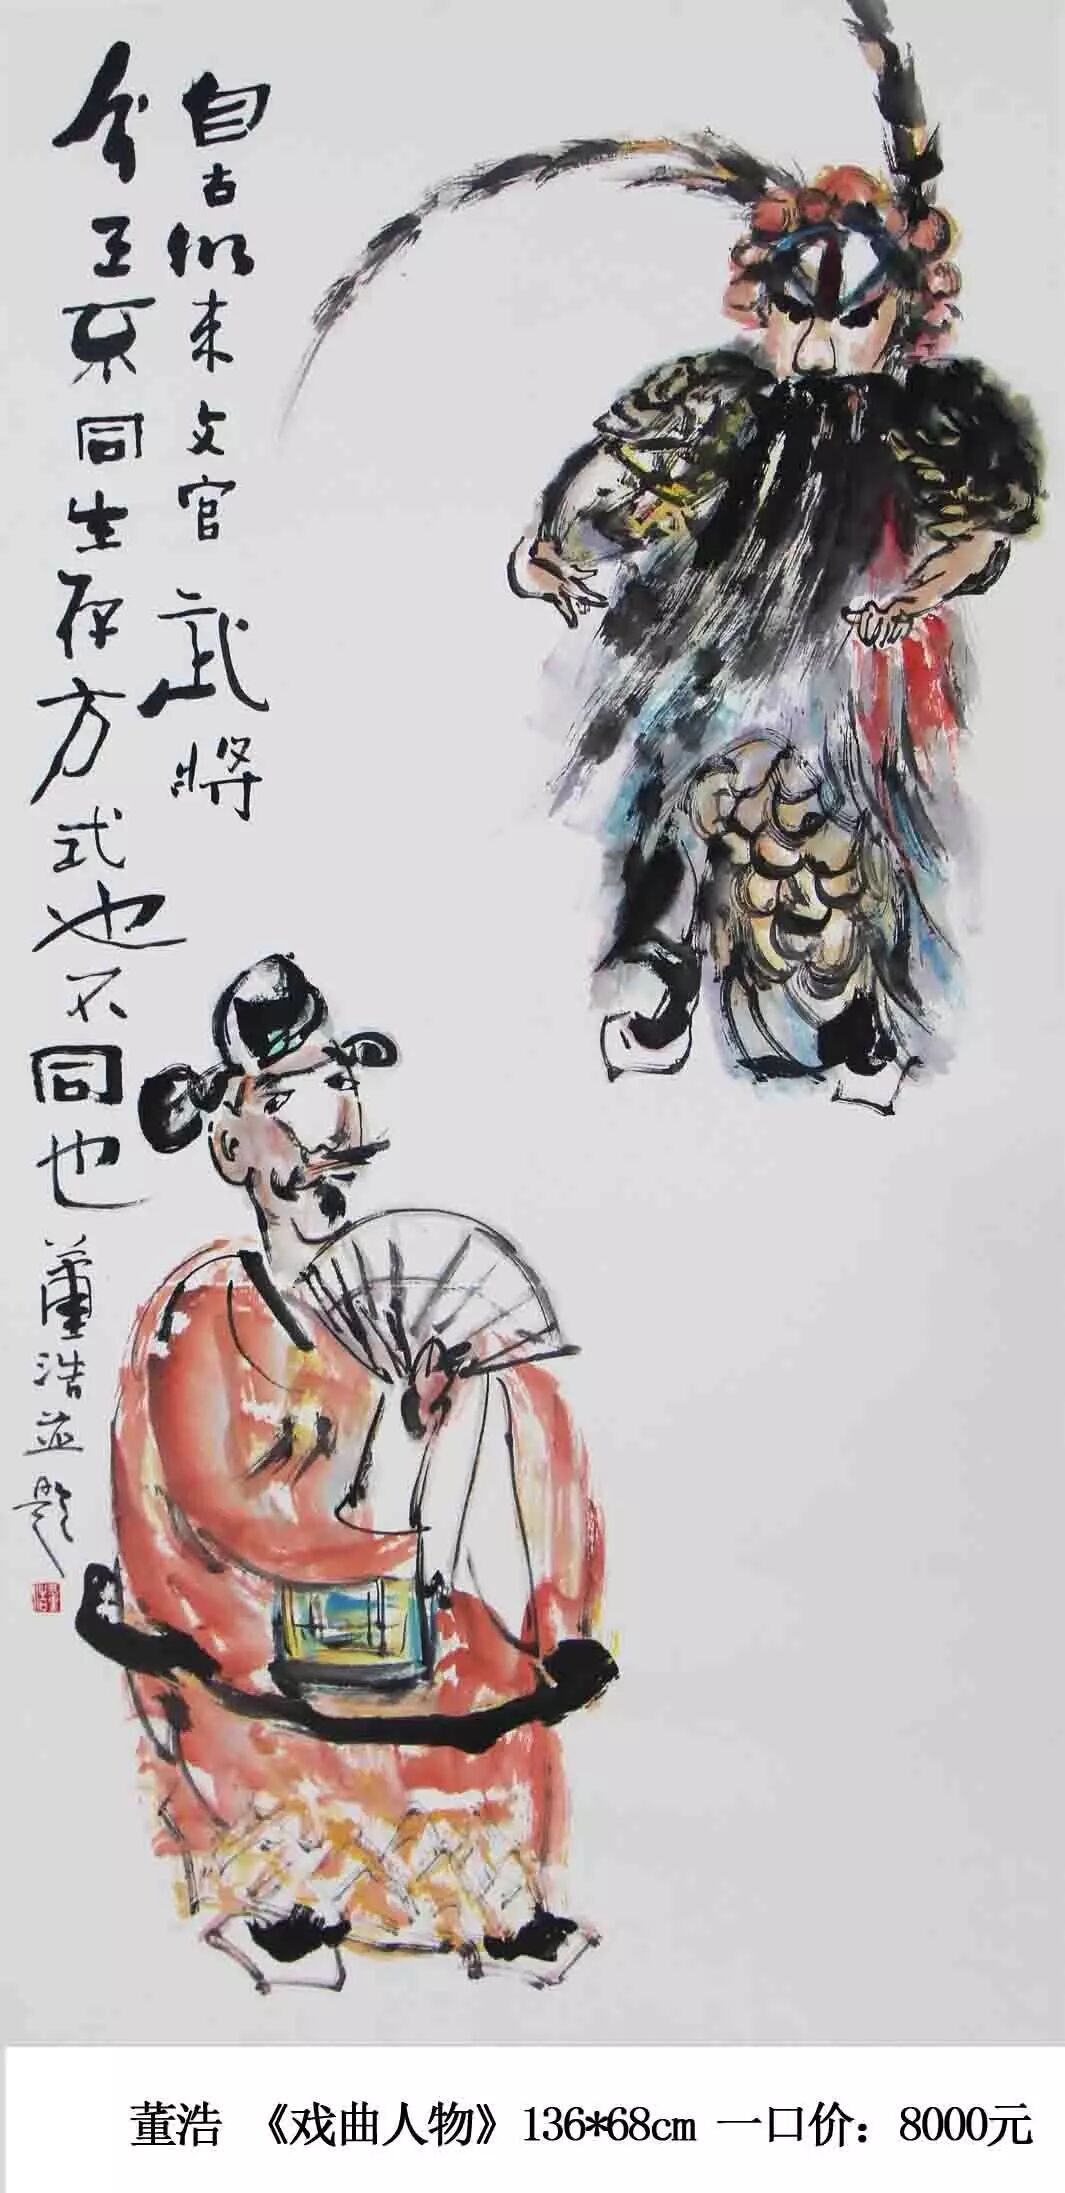 自古以来文官武將
分工不同生存方式也不同也
董浩並题
董浩 《戏曲人物》136*68cm 一口价：8000元